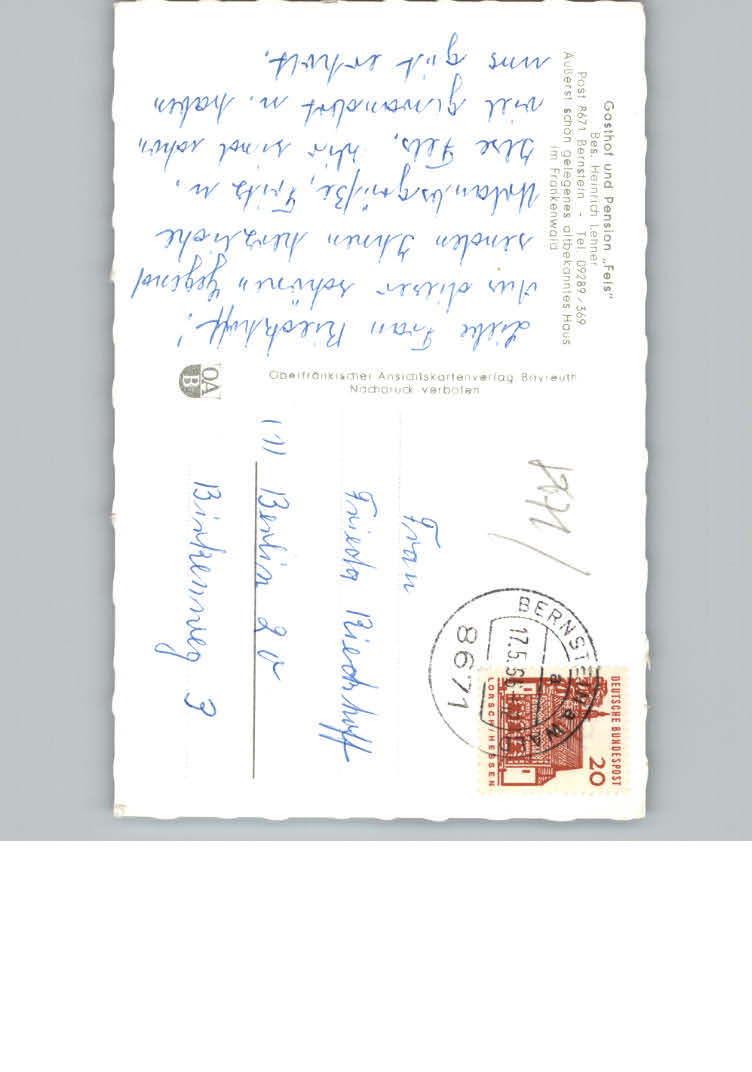 Gasthof und Pension „Fels"
Bes. Heinrich Lehner
Post 8671 Bernstein - Tel. 09289/369
Äußerst schön gelegenes altbekanntes Haus
im Frankenwald
Liebe Frau Rieckhoff!
Aus dieser schönen Gegend
senden Ihnen herzliche
Urlaubsgrüße, Fritz u.
Else Fels. Wir sind schon
viel gewandert u. haben
uns gut erholt.
OA
B
Oberfränkischer Ansichtskartenverlag Bayreuth
Nachdruck verboten
BERNSTEIN a WA
17.5.66
a
8671
DEUTSCHE BUNDESPOST
20
LORSCH/HESSEN
Frau
Frieda Rieckhoff
(1) Berlin 20
Birkenweg 3